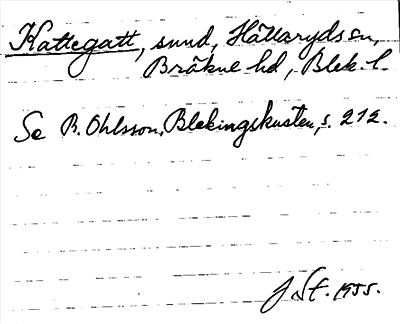 Kattegatt, sund, Hällaryds sn,
Bräkne hd, Blek. l.
Se B. Ohlsson, Blekingskusten, s. 212.
J St. 1955.